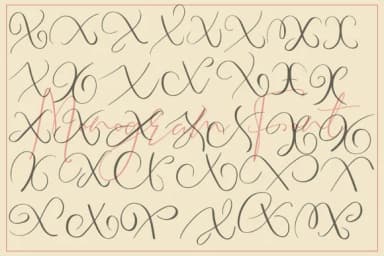 X X X X X X X X
X X X X X X X X
X X X X X X X
Monogram Font
X X X X X X
X X X X X X